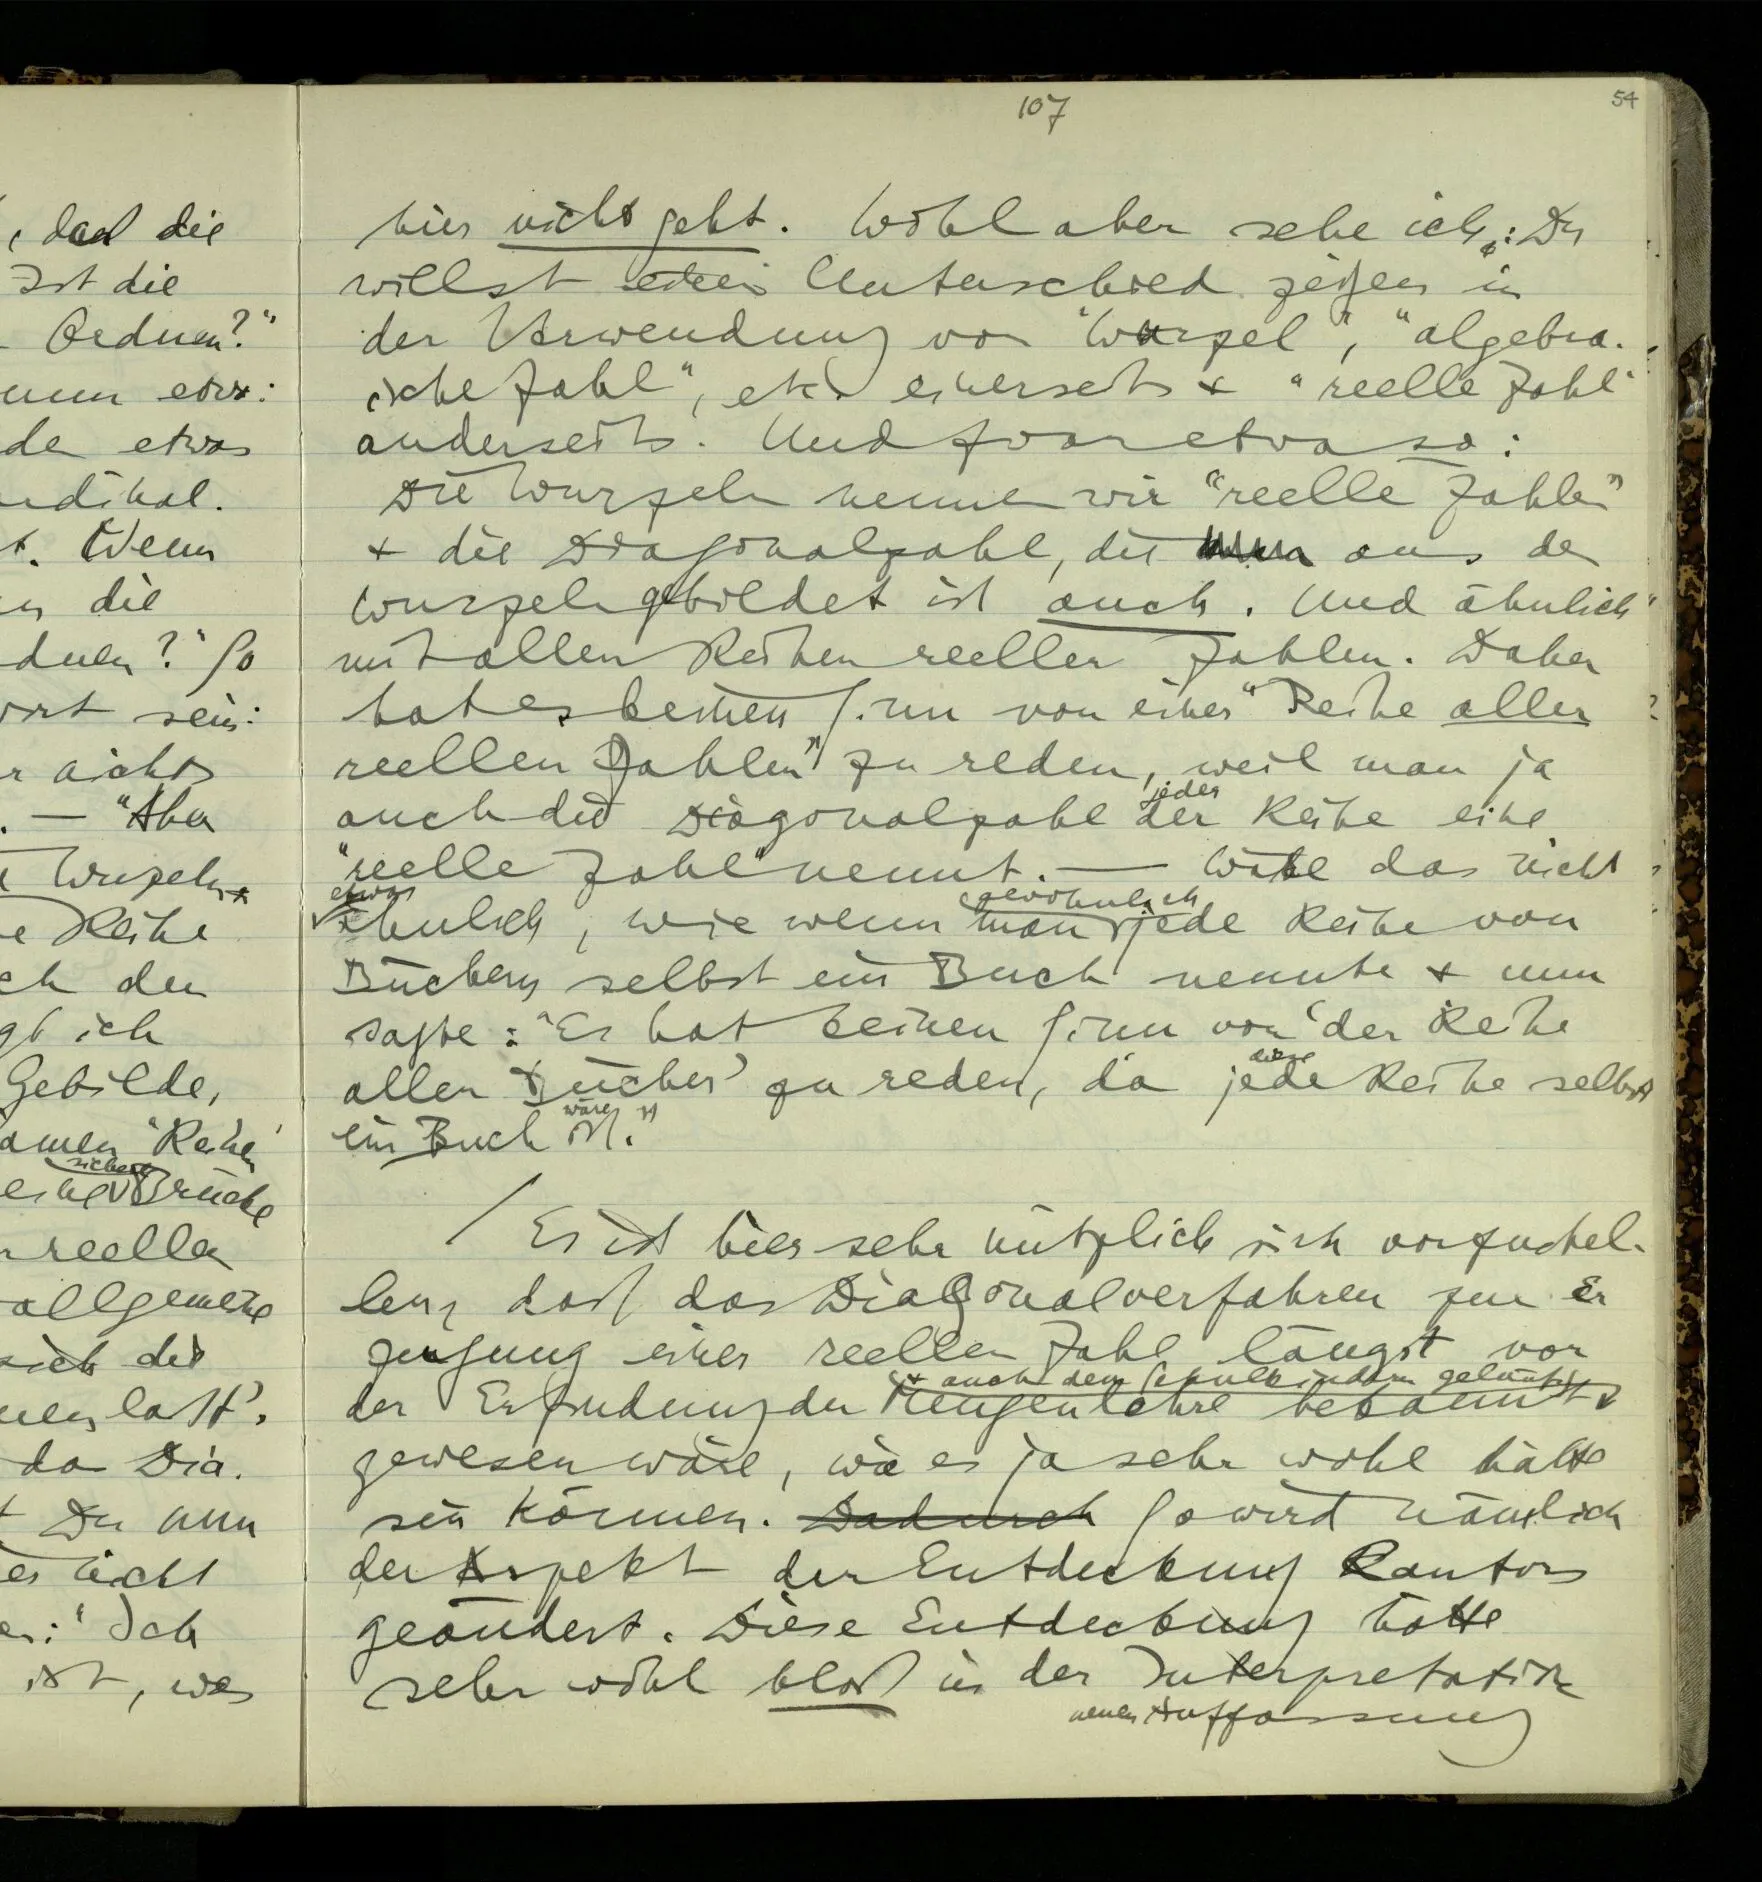 107
54
, daß die
Ist die
Ordnen?"
nun etwa:
de etwas
ndikal.
t. Wenn
die
dnen?" So
ort sein:
r nichts
. — "Aber
Wurzeln &
e Reihe
ch den
gt ich
Gebilde,
amen 'Reihen'
sichere
eine Brücke
reeller
allgemeine
sich die
nen laßt'.
da Dia-
t Du nun
es nicht
er: "Ich
ist, was
hier nicht geht. Wohl aber sehe ich: Du
willst einen Unterschied zeigen in
der Verwendung von "Wurzel", "algebra-
ische Zahl", etc. einerseits & "reelle Zahl"
anderseits. Und zwar etwa so:
Die Wurzeln nennen wir "reelle Zahlen"
& die Diagonalzahl, die aus den
Wurzeln gebildet ist auch. Und ähnlich
mit allen Reihen reeller Zahlen. Daher
hat es keinen Sinn von einer "Reihe aller
reellen Zahlen" zu reden, weil man ja
jeder
auch die Diagonalzahl der Reihe eine
"reelle Zahl" nennt. — Wäre das nicht
etwas gewöhnlich
ähnlich, wie wenn man jede Reihe von
Büchern selbst ein Buch nennte & nun
sagte: "Es hat keinen Sinn von 'der Reihe
diese
aller Bücher' zu reden, da jede Reihe selbst
wäre
ein Buch ist."
/ Es ist hier sehr nützlich sich vorzustel-
len, daß das Diagonalverfahren zur Er
zeugung einer reellen Zahl längst vor
& auch den Schulkindern geläufig
der Erfindung der Mengenlehre bekannt &
gewesen wäre, wie es ja sehr wohl hätte
sein können. Dadurch So wird nämlich
der Aspekt der Entdeckung Cantors
geändert. Diese Entdeckung hätte
sehr wohl bloß in der Interpretation
neuen Auffassung